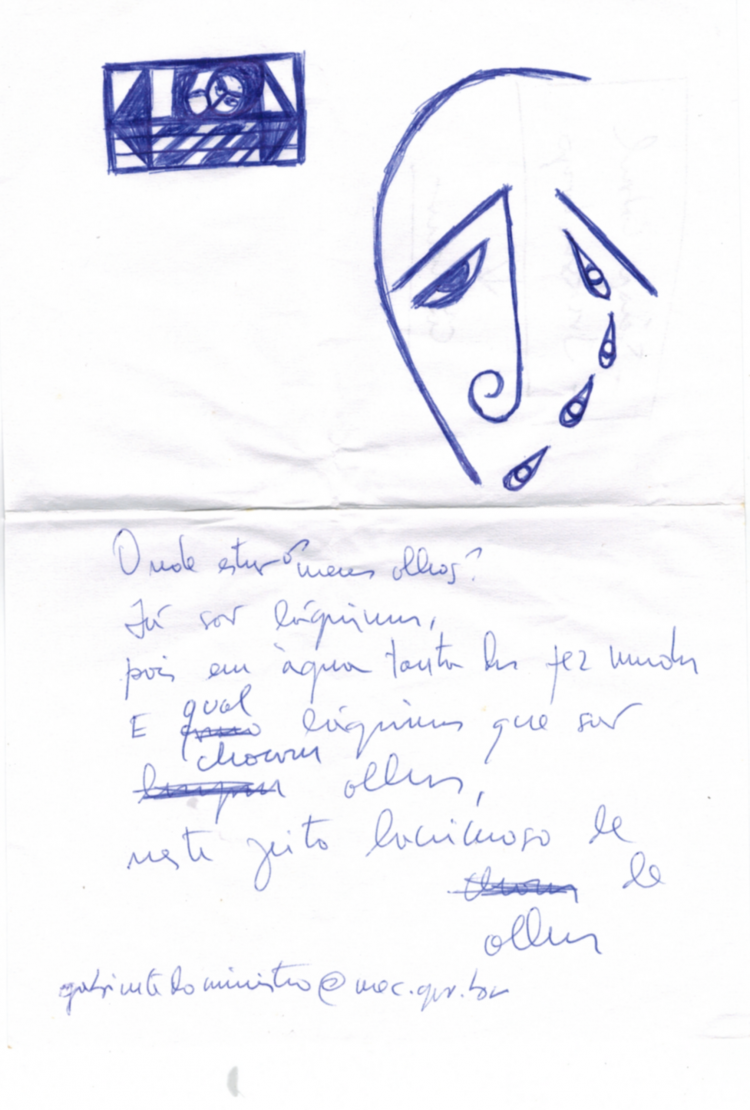 Onde estão meus olhos?
Já são lágrimas,
pois em água tanta fez mudar
qual
E lágrimas que são
choram
olhos,
neste jeito lacrimoso de
de
olhar
gabinetedoministro@mec.gov.br